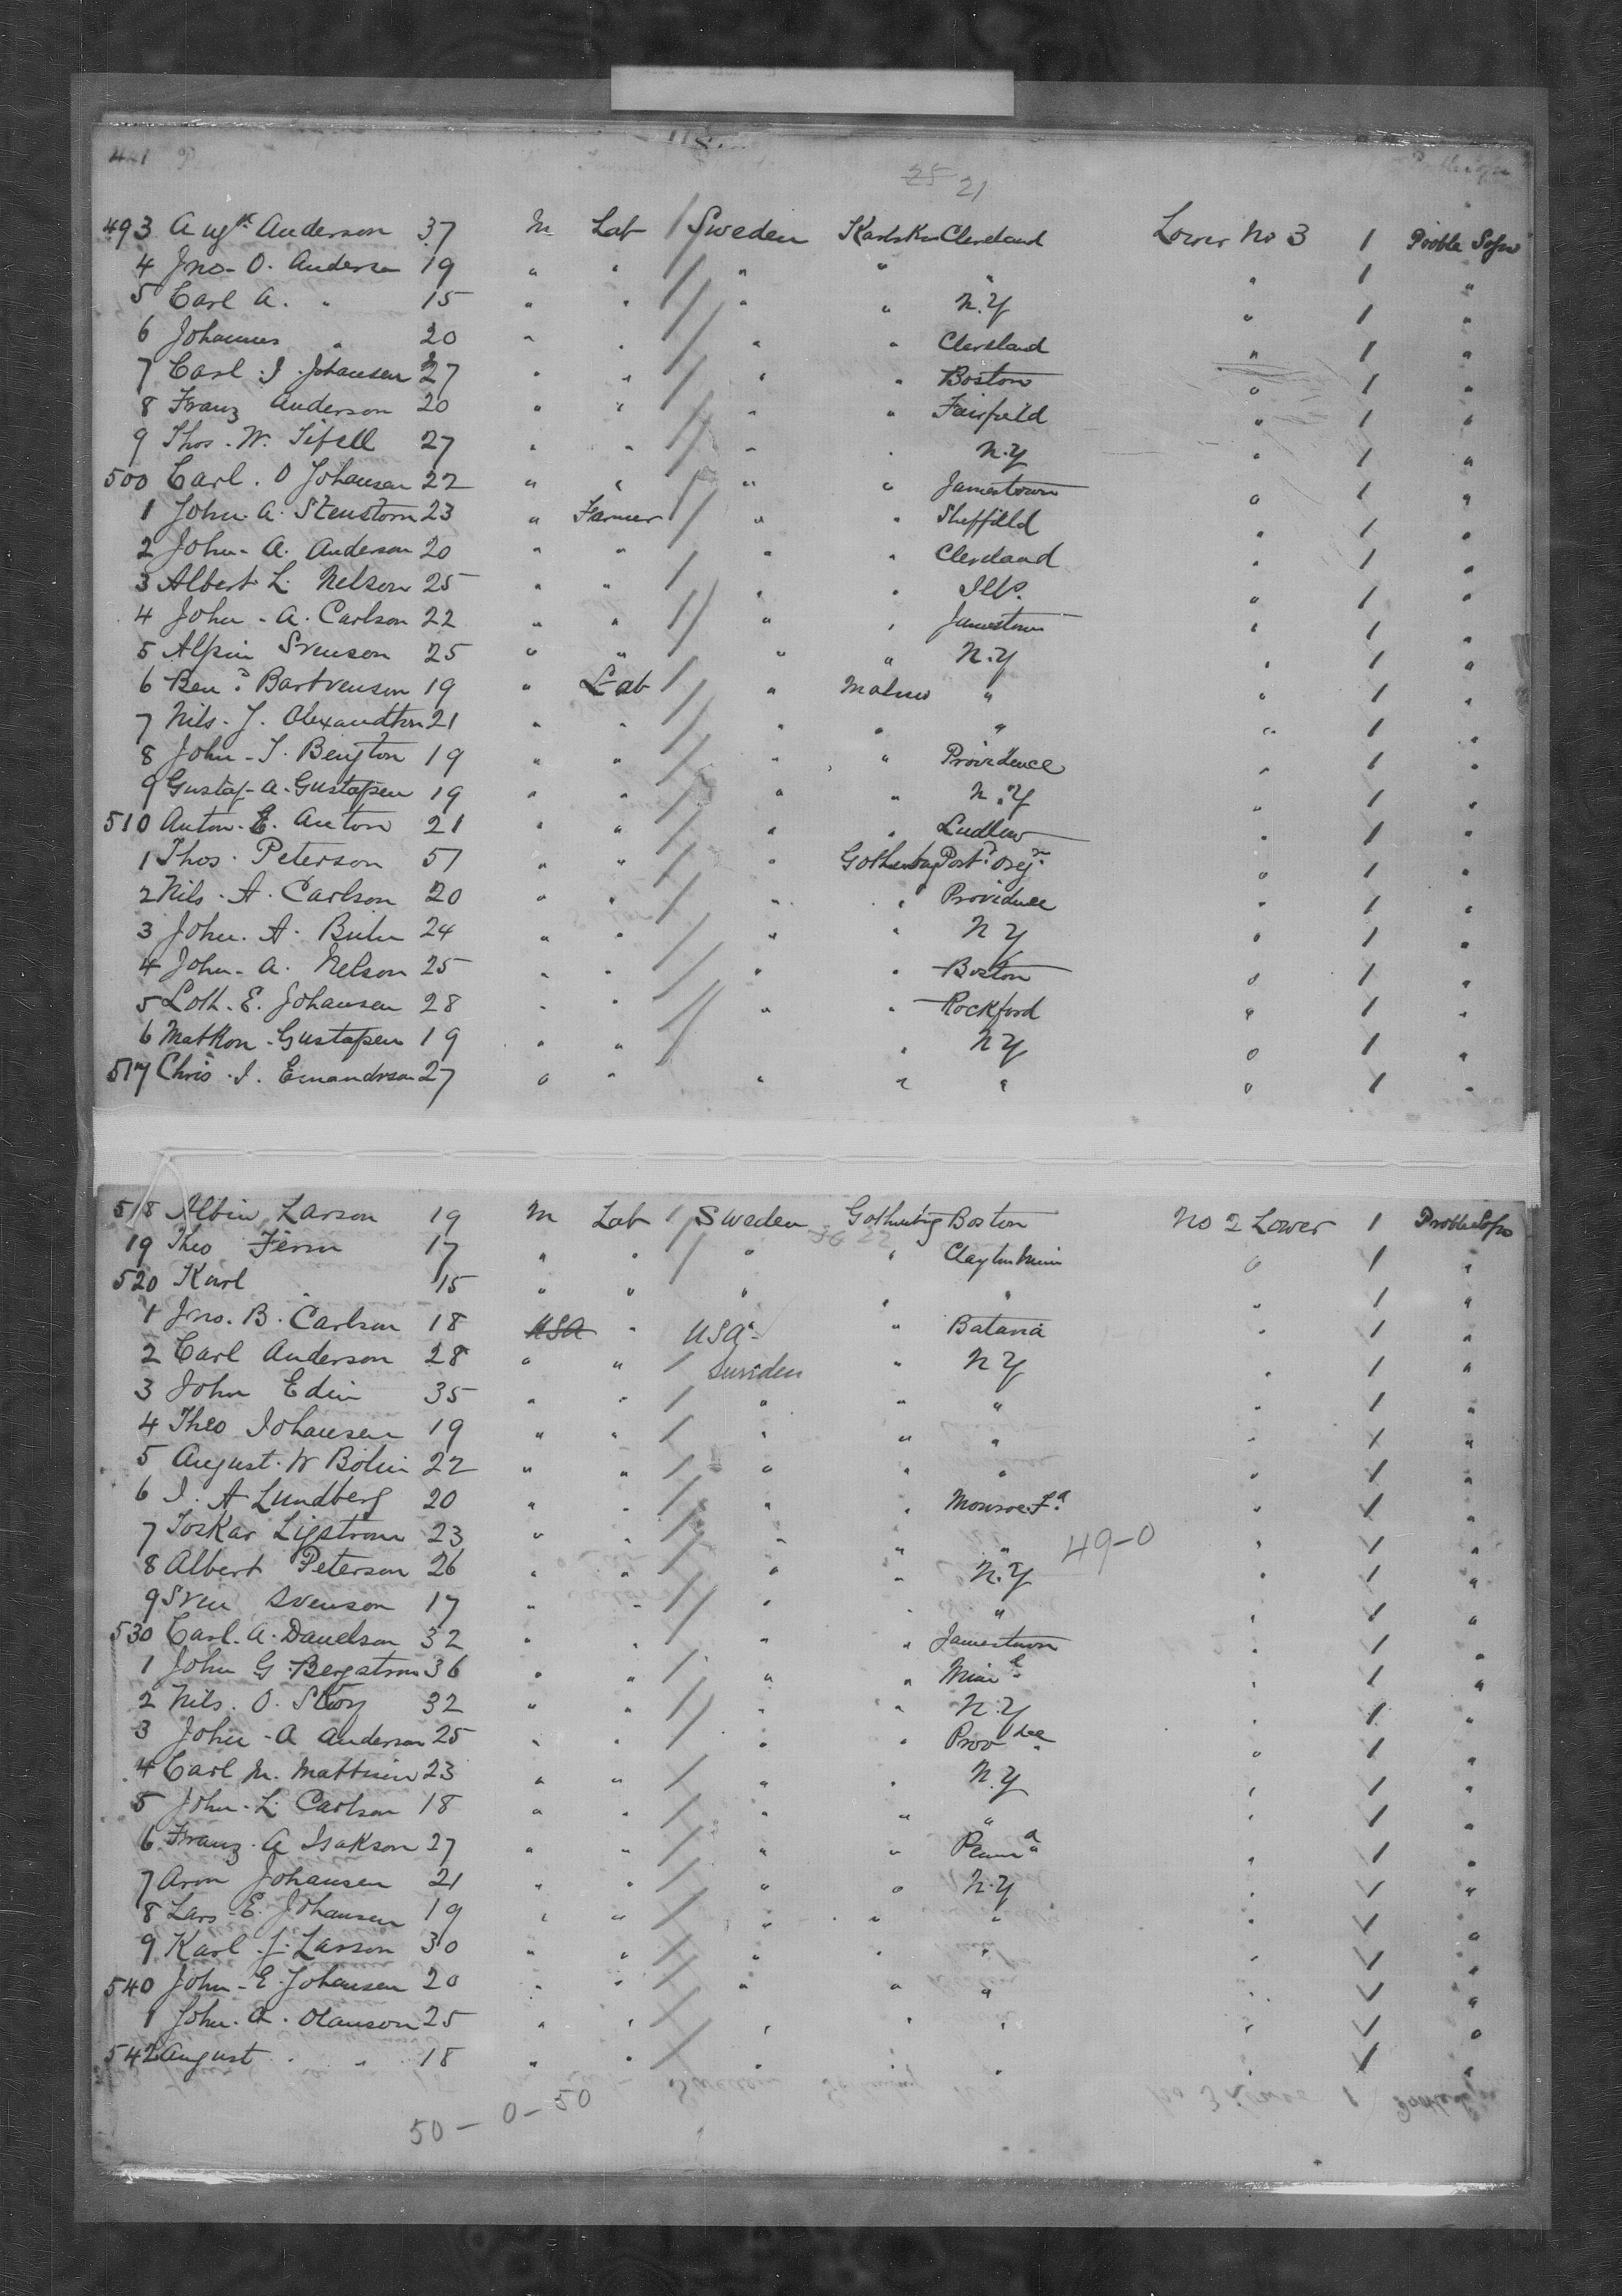 25 21
493 Augst Anderson 37 M Lab / Sweden Karlskr Cleveland Lower No 3 1 Proble Sojn
4 Jno. O. Anderson 19 " " / " " " " 1 "
5 Carl A. " 15 " " / " " N.Y " 1 "
6 Johannes " 20 " " / " " Cleveland " 1 "
7 Carl J. Johansen 27 " " / " " Boston " 1 "
8 Franz Anderson 20 " " / " " Fairfield " 1 "
9 Thos. W. Tifell 27 " " / " " N.Y " 1 "
500 Carl. O Johansen 22 " " / " " Jamestown " 1 "
1 John. A. Stenstorm 23 " Farmer / " " Sheffield " 1 "
2 John. A. Anderson 20 " " / " " Cleveland " 1 "
3 Albert L. Nelson 25 " " / " " Ills. " 1 "
4 John. A. Carlson 22 " " / " " Jamestown " 1 "
5 Alpin Svenson 25 " " / " " N.Y " 1 "
6 Ben. Bartvenson 19 " Lab / " Malmo " " 1 "
7 Nils. J. 21 " " / " " " " 1 "
8 John. J. Bengton 19 " " / " " Providence " 1 "
9 Gustaf. A. Gustafsen 19 " " / " " N.Y " 1 "
510 Anton. E. Anton 21 " " / " " Ludlow " 1 "
1 Thos. Peterson 51 " " / " Gothenbug Portd. Oregn. " 1 "
2 Nils. A. Carlson 20 " " / " " Providence " 1 "
3 John. A. 24 " " / " " N Y " 1 "
4 John. A. Nelson 25 " " / " " Boston " 1 "
5 Loth. E. Johansen 28 " " / " " Rockford " 1 "
6 Matkon. Gustafsen 19 " " / " " N Y " 1 "
517 Chris. J. 27 " " " " " " 1 "
518 Albin Larson 19 M Lab / Sweden Gothenbug Boston No 2 Lower 1 Proble Sojn
19 Theo Ferm 17 " " / " " Clayton Minn " 1 "
520 Karl " 15 " " " " " " 1 "
1 Jno. B. Carlson 18 USA " USA " Batavia " 1 "
2 Carl Anderson 28 " " / Sweden " N Y " 1 "
3 John Edin 35 " " / " " " 1 "
4 Theo Johansen 19 " " / " " " " 1 "
5 August. W Bolin 22 " " / " " " " 1 "
6 J. A Lundberg 20 " " / " " Monroe " 1 "
7 Toskar Ligstrom 23 " " / " " " 49-0 " 1 "
8 Albert Peterson 26 " " / " " N.Y " 1 "
9 Sven Svenson 17 " " / " " " " 1 "
530 Carl. A. Danelson 32 " " / " " Jamestown " 1 "
1 John G. Bergstrom 36 " " / " " " 1 "
2 Nils. O. 32 " " / " " N.Y " 1 "
3 John. A Anderson 25 " " / " " Provdce " 1 "
4 Carl M. 23 " " / " " N.Y " 1 "
5 John. L. Carlson 18 " " / " " " " 1 "
6 Franz. A Isakson 27 " " / " " Penna " 1 "
7 Aron Johansen 21 " " / " " N.Y " ✓ "
8 Lars. E. Johansen 19 " " / " " " " ✓ "
9 Karl. J. Larson 30 " " / " " " " ✓ "
540 John. E. Johansen 20 " " / " " " " ✓ "
1 John. A. Olauson 25 " " / " " " " ✓ "
542 August " 18 " " / " " " " 1 "
50 - 0 - 50